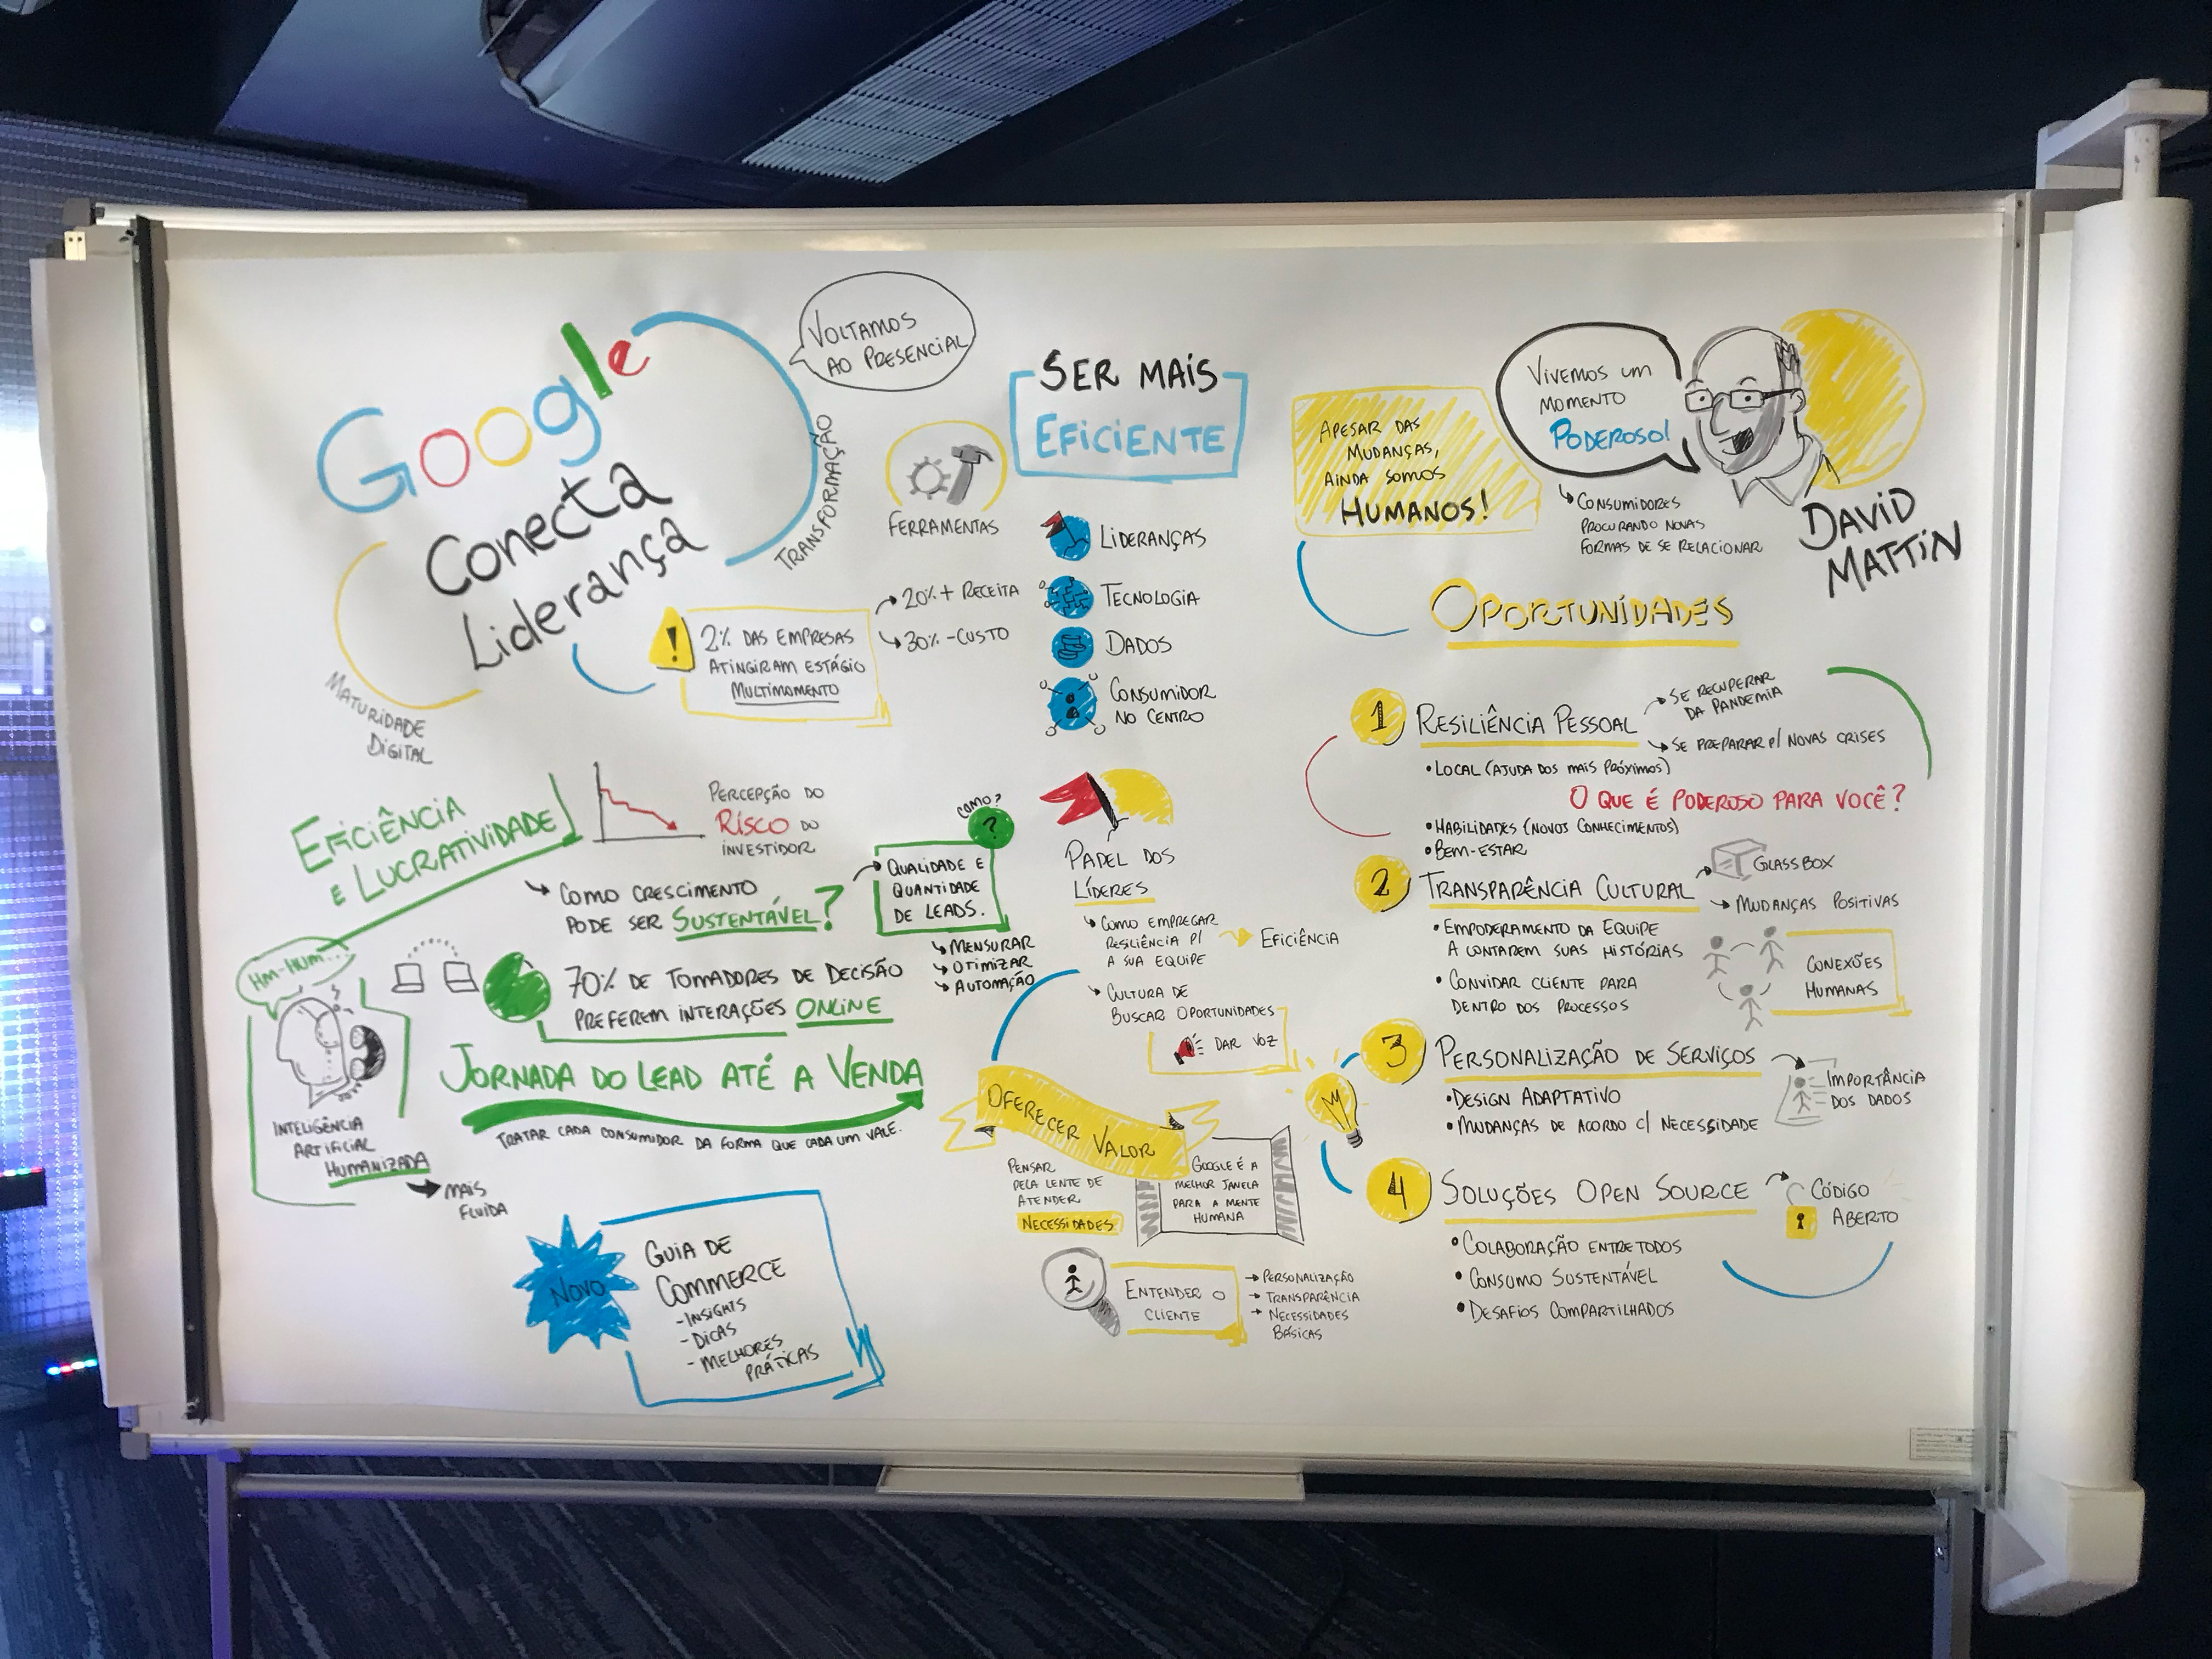 Google
Conecta
Liderança
VOLTAMOS
AO PRESENCIAL
TRANSFORMAÇÃO
MATURIDADE
DIGITAL
FERRAMENTAS
! 2% DAS EMPRESAS
ATINGIRAM ESTÁGIO
MULTIMOMENTO
20% + RECEITA
30% - CUSTO
SER MAIS
EFICIENTE
LIDERANÇAS
TECNOLOGIA
DADOS
CONSUMIDOR
NO CENTRO
EFICIÊNCIA
E LUCRATIVIDADE
PERCEPÇÃO DO
RISCO DO
INVESTIDOR
COMO CRESCIMENTO
PODE SER SUSTENTÁVEL?
COMO?
?
QUALIDADE E
QUANTIDADE
DE LEADS.
MENSURAR
OTIMIZAR
AUTOMAÇÃO
HM-HUM...
70% DE TOMADORES DE DECISÃO
PREFEREM INTERAÇÕES ONLINE
INTELIGÊNCIA
ARTIFICIAL
HUMANIZADA
MAIS
FLUÍDA
JORNADA DO LEAD ATÉ A VENDA
TRATAR CADA CONSUMIDOR DA FORMA QUE CADA UM VALE.
NOVO
GUIA DE
COMMERCE
- INSIGHTS
- DICAS
- MELHORES
PRÁTICAS
PAPEL DOS
LÍDERES
COMO EMPREGAR
RESILIÊNCIA P/
A SUA EQUIPE
EFICIÊNCIA
CULTURA DE
BUSCAR OPORTUNIDADES
DAR VOZ
OFERECER VALOR
PENSAR
PELA LENTE DE
ATENDER
NECESSIDADES
GOOGLE É A
MELHOR JANELA
PARA A MENTE
HUMANA
ENTENDER O
CLIENTE
PERSONALIZAÇÃO
TRANSPARÊNCIA
NECESSIDADES
BÁSICAS
APESAR DAS
MUDANÇAS,
AINDA SOMOS
HUMANOS!
VIVEMOS UM
MOMENTO
PODEROSO!
CONSUMIDORES
PROCURANDO NOVAS
FORMAS DE SE RELACIONAR
DAVID
MATTIN
OPORTUNIDADES
1 RESILIÊNCIA PESSOAL
SE RECUPERAR
DA PANDEMIA
SE PREPARAR P/ NOVAS CRISES
• LOCAL (AJUDA DOS MAIS PRÓXIMOS)
O QUE É PODEROSO PARA VOCÊ?
• HABILIDADES (NOVOS CONHECIMENTOS)
• BEM-ESTAR
2 TRANSPARÊNCIA CULTURAL
GLASSBOX
MUDANÇAS POSITIVAS
• EMPODERAMENTO DA EQUIPE
A CONTAREM SUAS HISTÓRIAS
• CONVIDAR CLIENTE PARA
DENTRO DOS PROCESSOS
CONEXÕES
HUMANAS
3 PERSONALIZAÇÃO DE SERVIÇOS
• DESIGN ADAPTATIVO
• MUDANÇAS DE ACORDO C/ NECESSIDADE
IMPORTÂNCIA
DOS DADOS
4 SOLUÇÕES OPEN SOURCE
CÓDIGO
ABERTO
• COLABORAÇÃO ENTRE TODOS
• CONSUMO SUSTENTÁVEL
• DESAFIOS COMPARTILHADOS